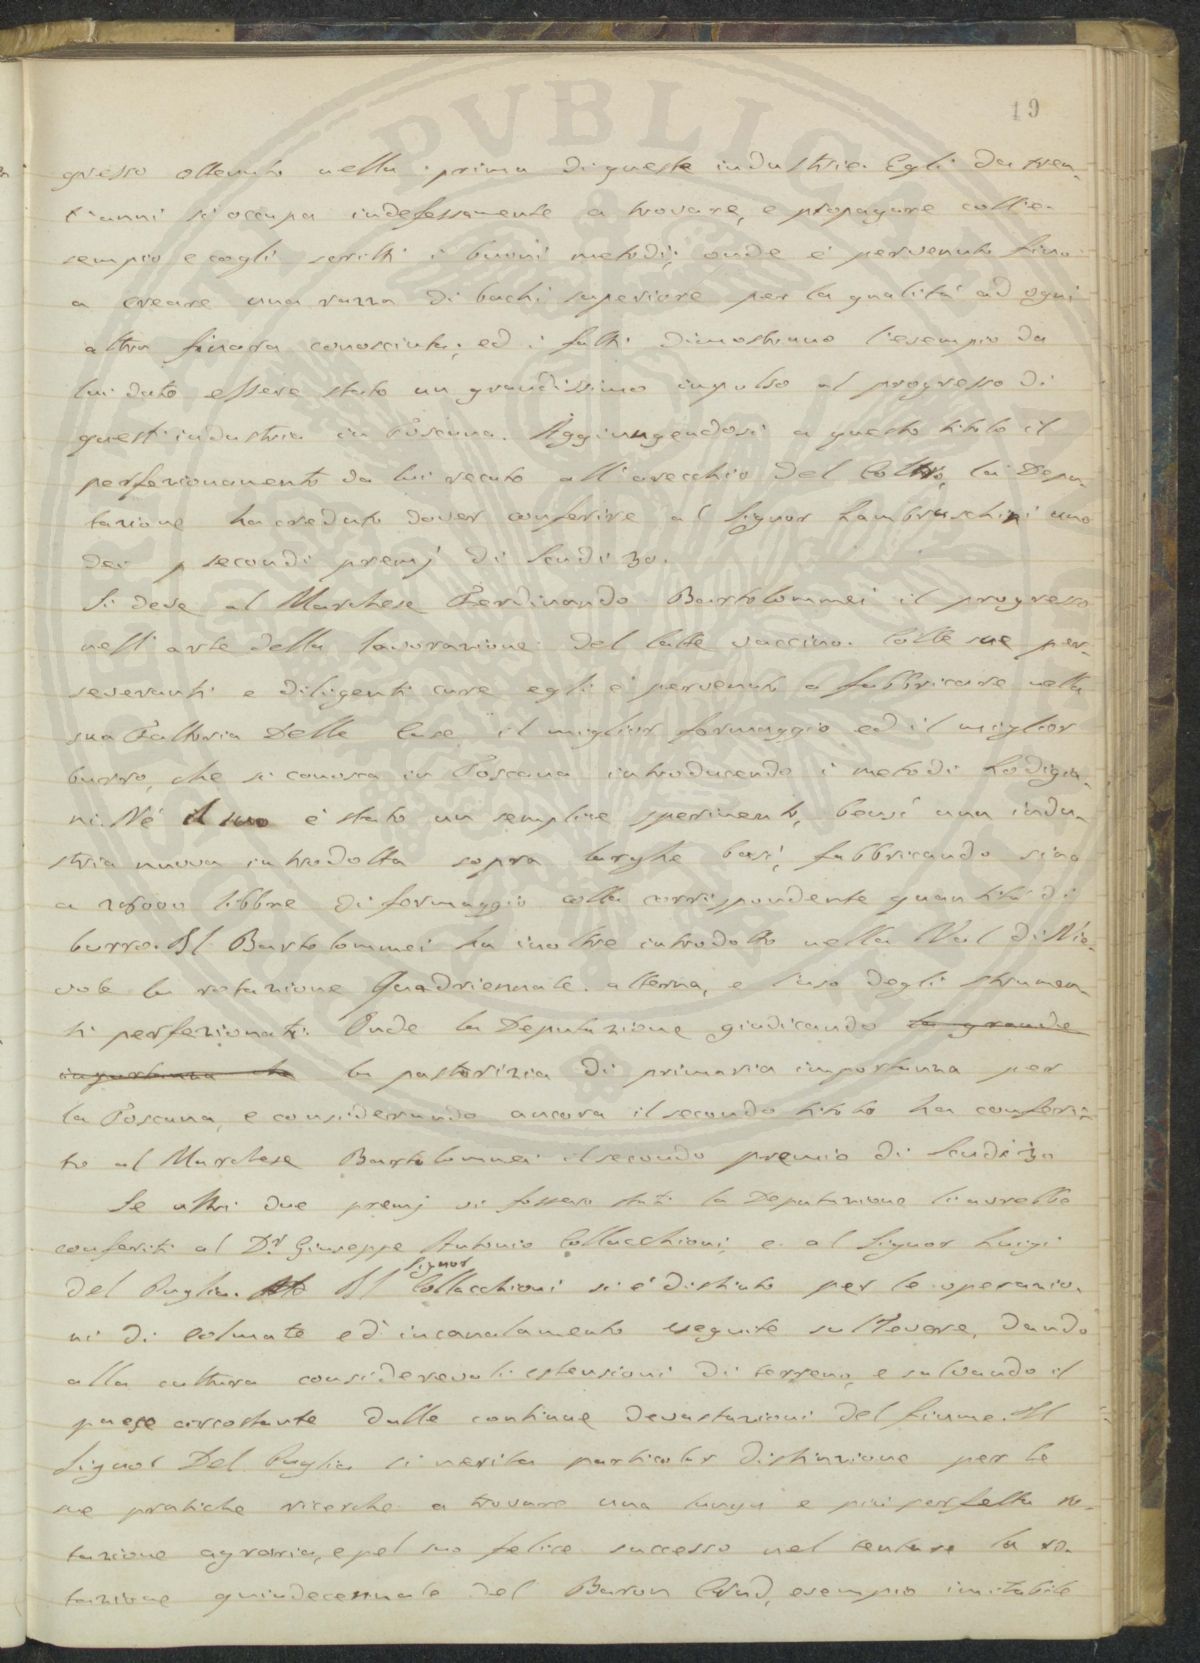 PVBLICVM
19
gresso ottenuto nella prima di queste industrie. Egli da tren-
t'anni si occupa indefessamente a trovare, e propagare coll'e-
sempio e cogli scritti i buoni metodi; onde è pervenuto fino
a creare una razza di bachi superiore per la qualità ad ogni
altra finora conosciuta; ed i fatti dimostrano l'esempio da
lui dato essere stato un grandissimo impulso al progresso di
quest'industria in Toscana. Aggiungendosi a questo titolo il
perfezionamento da lui recato all'orecchio del Coltro, la Depu-
tazione ha creduto dover conferire al Signor Lambruschini uno
dei secondi premj di Scudi 30.
Si deve al Marchese Ferdinando Bartolommei il progresso
nell'arte della lavorazione del latte vaccino. Colle sue per-
severanti e diligenti cure egli è pervenuto a fabbricare nella
sua Fattoria Delle Case il miglior formaggio ed il miglior
burro, che si conosca in Toscana introducendo i metodi Lodigia-
ni. Nè il suo è stato un semplice sperimento, bensì una indu-
stria nuova introdotta sopra larghe basi, fabbricando sino
a libbre di formaggio colla corrispondente quantità di
burro. Il Bartolommei ha inoltre introdotto nella Val di Nie-
vole la rotazione Quadriennale alterna, e l'uso degli strumen-
ti perfezionati. Onde la Deputazione giudicando la grande
importanza che la pastorizia di primaria importanza per
la Toscana, e considerando ancora il secondo titolo ha conferi-
to al Marchese Bartolommei il secondo premio di Scudi 30
Se altri due premj vi fossero stati la Deputazione li avrebbe
conferiti al Dr. Giuseppe Antonio Collacchioni, e al Signor Luigi
del Puglia. Il Signor Collacchioni si è distinto per le operazio-
ni di colmate ed incanalamento eseguite sul Tevere, dando
alla cultura considerevoli estensioni di terreno, e salvando il
paese circostante dalle continue devastazioni del fiume. Il
Signor Del Puglia si merita particolar distinzione per le
sue pratiche ricerche a trovare una lunga e più perfetta ro-
tazione agraria, e pel suo felice successo nel tentare la ro-
tazione quindecennale del Baron Crud, esempio imitabile